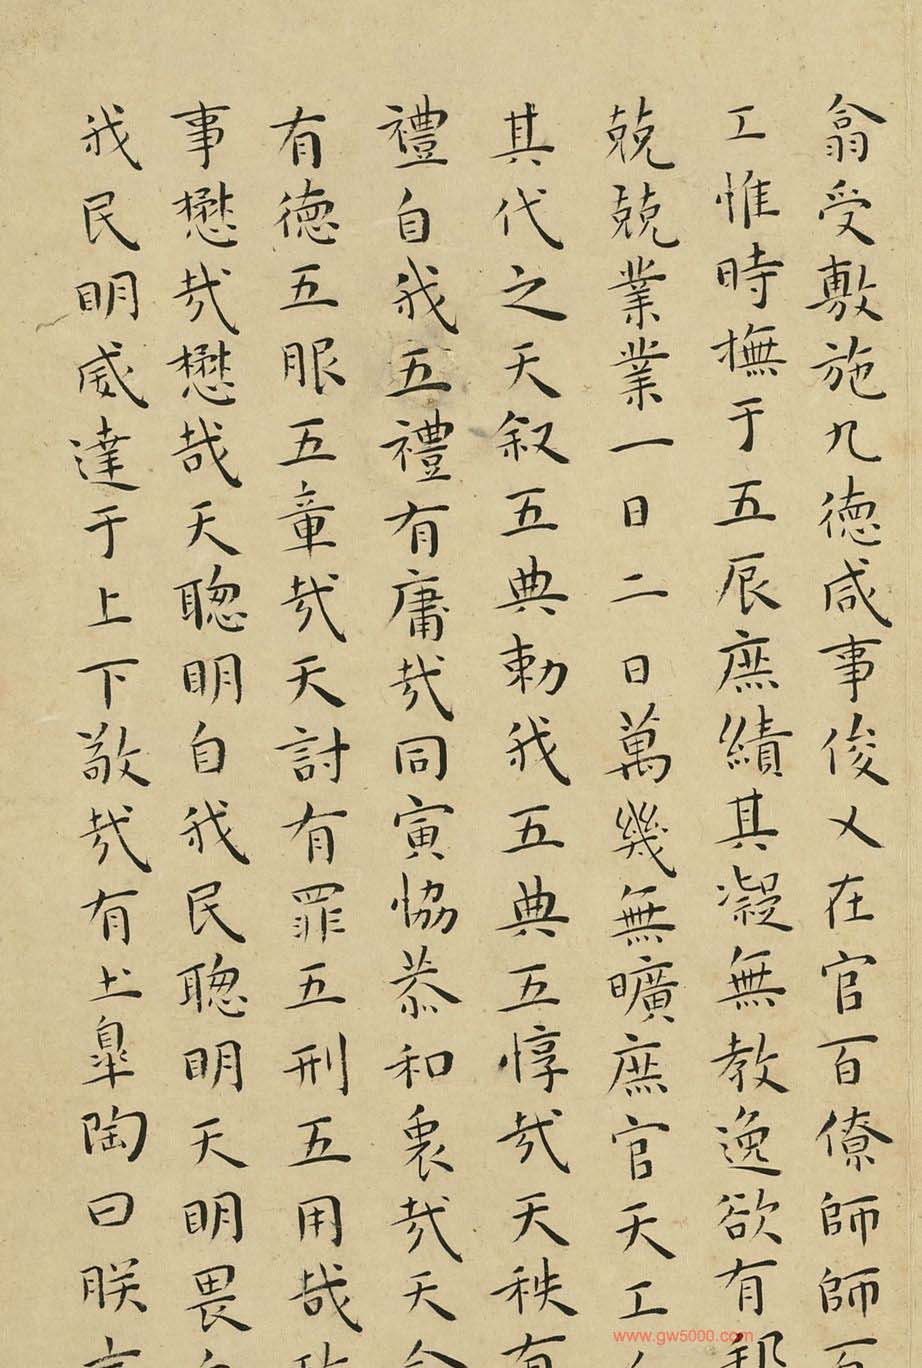 翕受敷施九德咸事俊乂在官百僚師師百
工惟時撫于五辰庶績其凝無教逸欲有邦
兢兢業業一日二日萬幾無曠庶官天工人
其代之天叙五典勅我五典五惇哉天秩有
禮自我五禮有庸哉同寅恊恭和衷哉天命
有德五服五章哉天討有罪五刑五用哉政
事懋哉懋哉天聦明自我民聦明天明畏自
我民明威達于上下敬哉有土皐陶曰朕言
www.gw5000.com